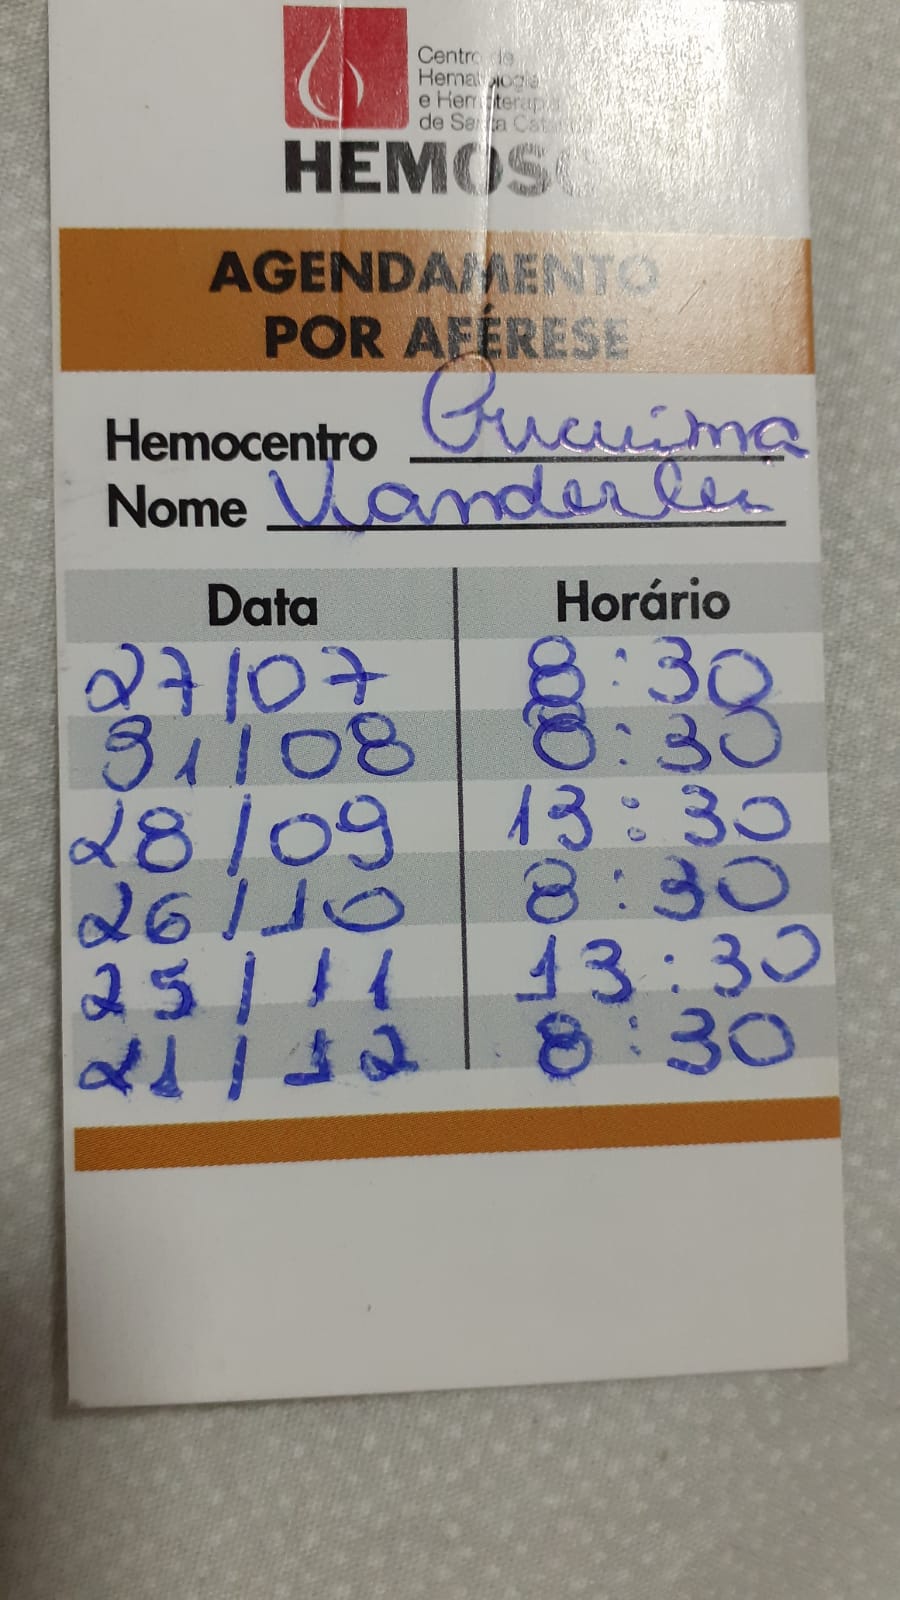 Centro de
Hematologia
e Hemoterapia
de Santa Catarina
HEMOSC
AGENDAMENTO
POR AFÉRESE
Hemocentro Criciúma
Nome Vanderlei
Data Horário
27/07 8:30
31/08 8:30
28/09 13:30
26/10 8:30
25/11 13:30
21/12 8:30